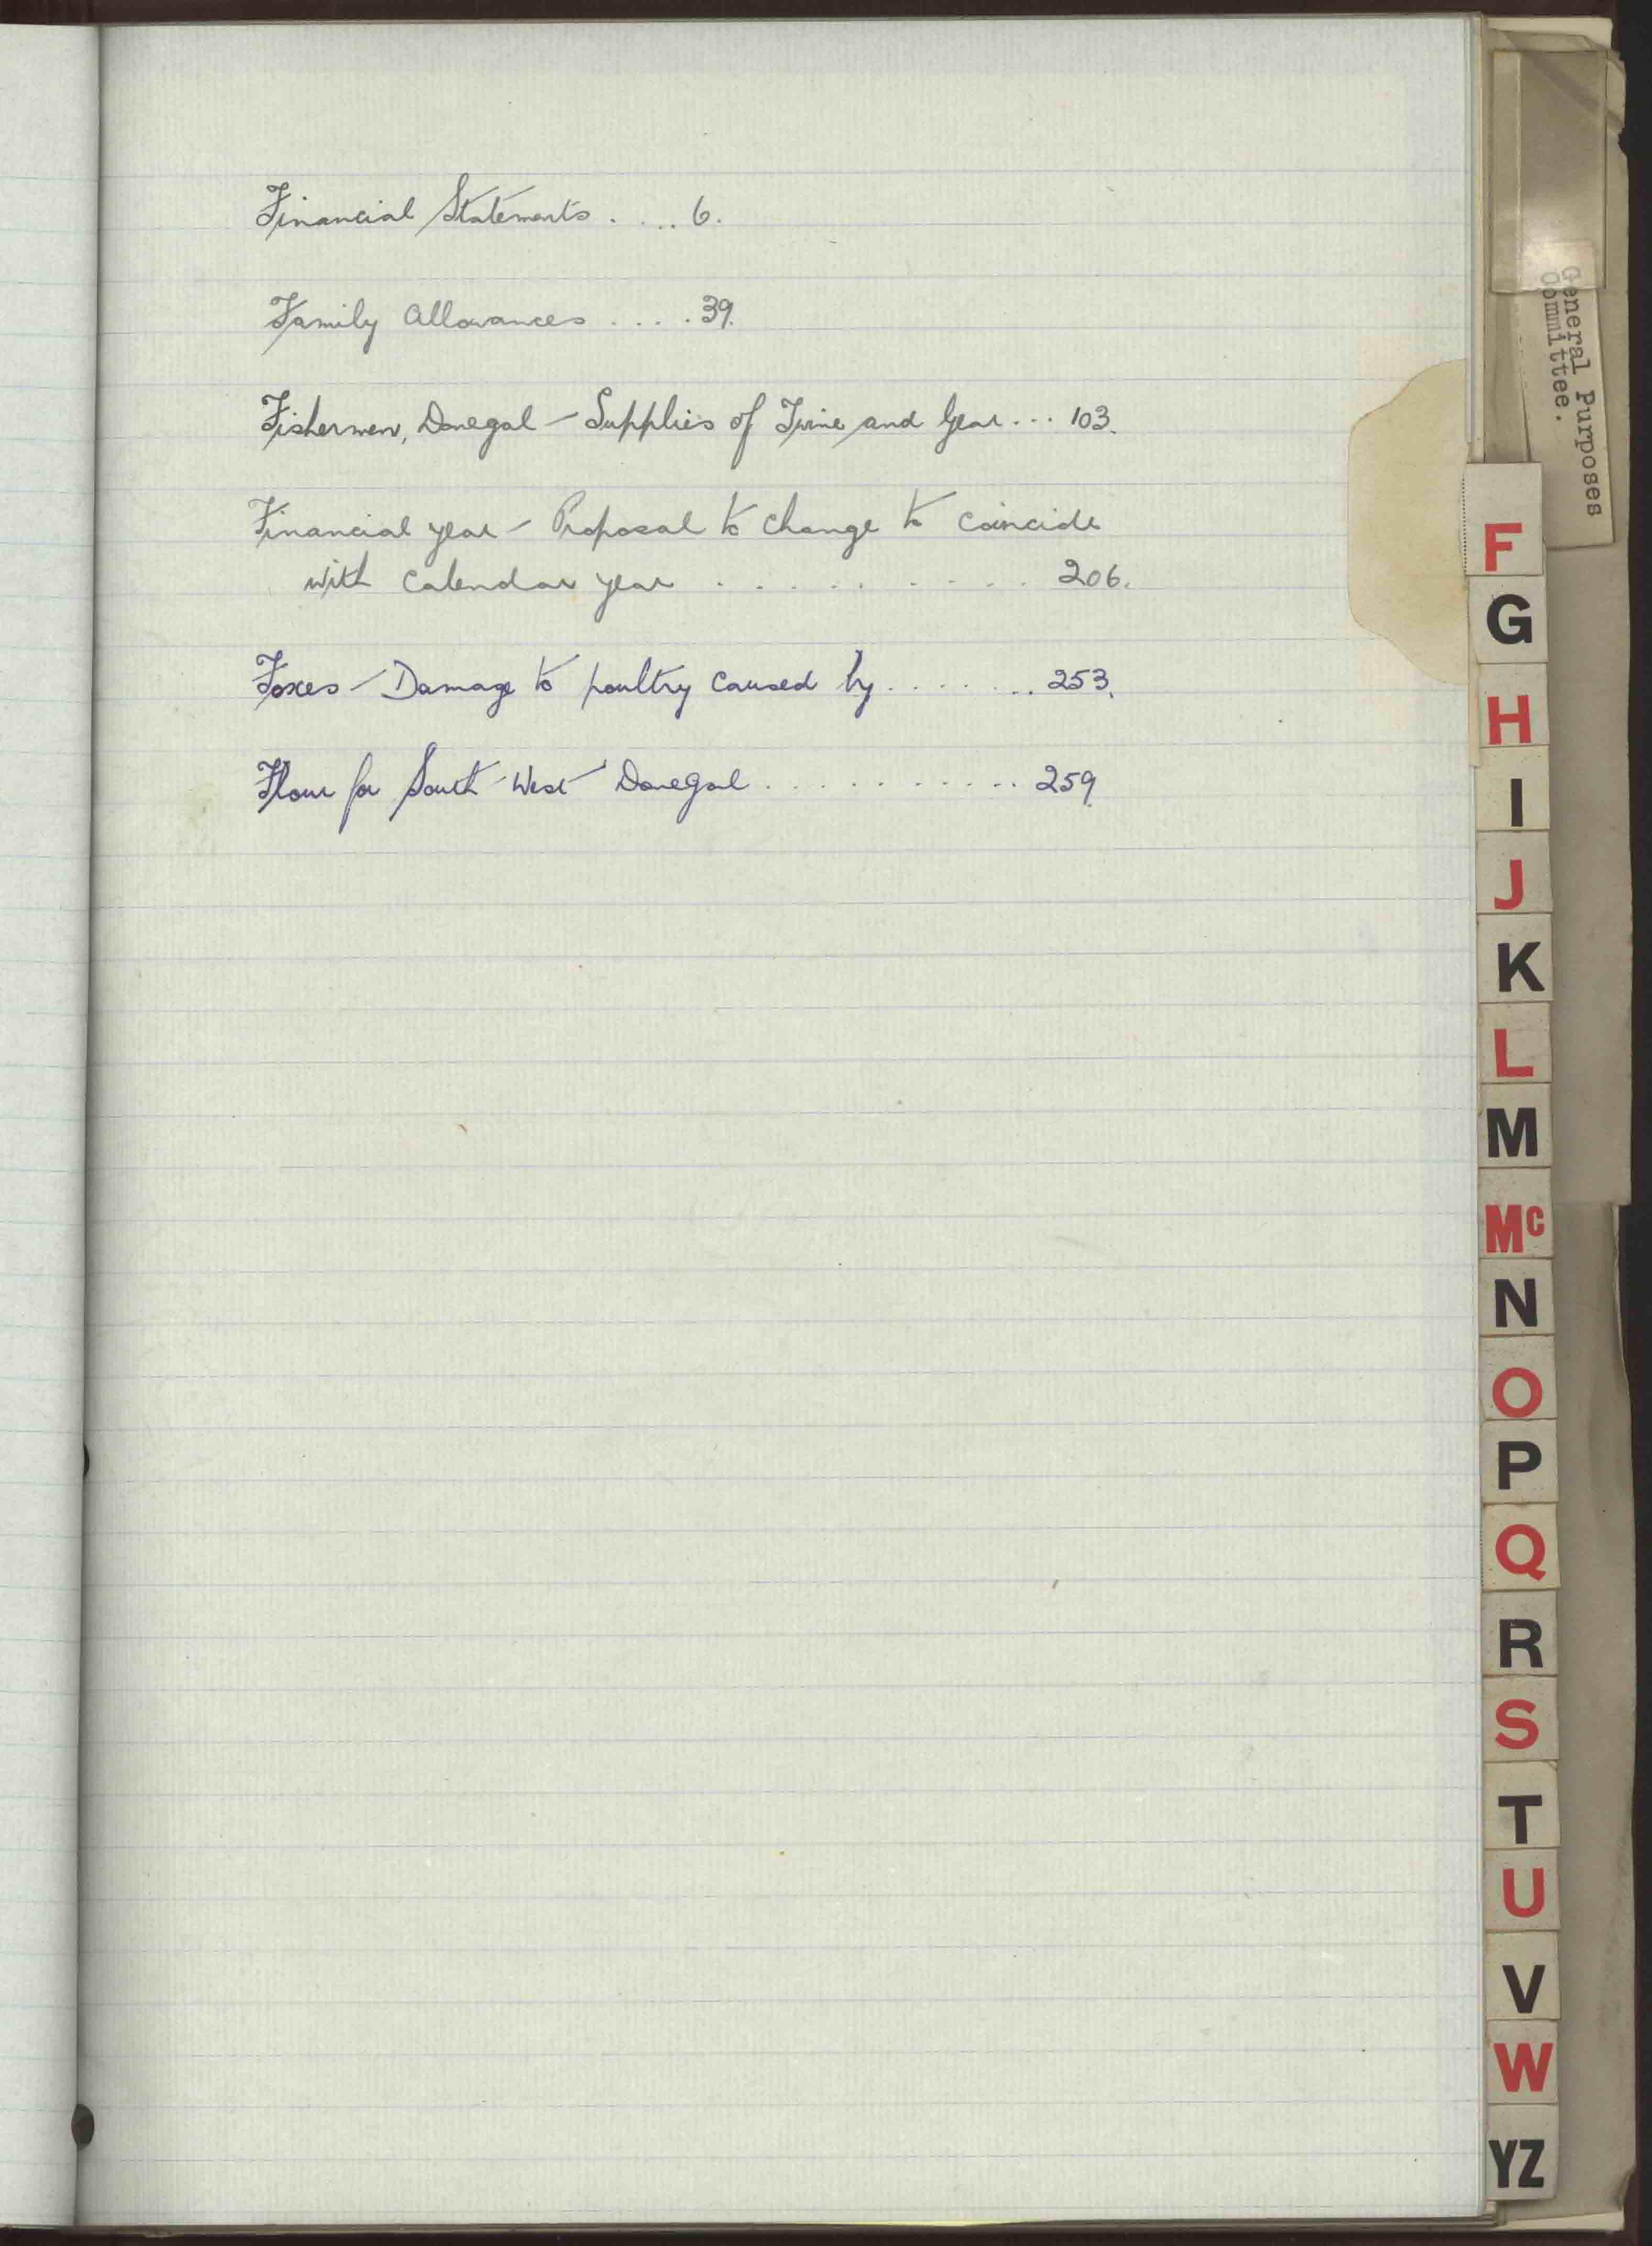 Financial Statements . . . . . 6.
Family Allowances . . . . 39.
Fishermen, Donegal - Supplies of Twine and Gear . . . 103.
Financial year - Proposal to change to coincide
with calendar year . . . . . . . . . . . 206.
Foxes - Damage to poultry caused by . . . . . . . . 253.
Flour for South West Donegal . . . . . . . . . . . 259.
General Purposes
Committee.
F
G
H
I
J
K
L
M
Mc
N
O
P
Q
R
S
T
U
V
W
YZ